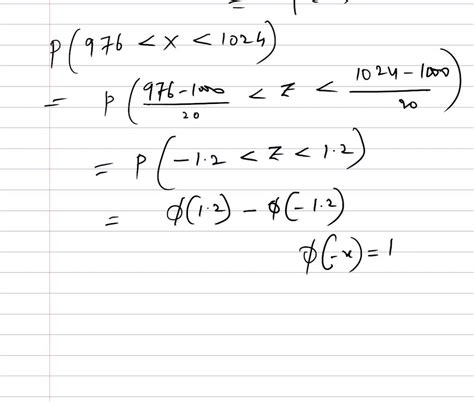 P(976 < x < 1024)
= P(976-1000/20 < Z < 1024-1000/20)
= P(-1.2 < Z < 1.2)
= φ(1.2) - φ(-1.2)
φ(-x) = 1